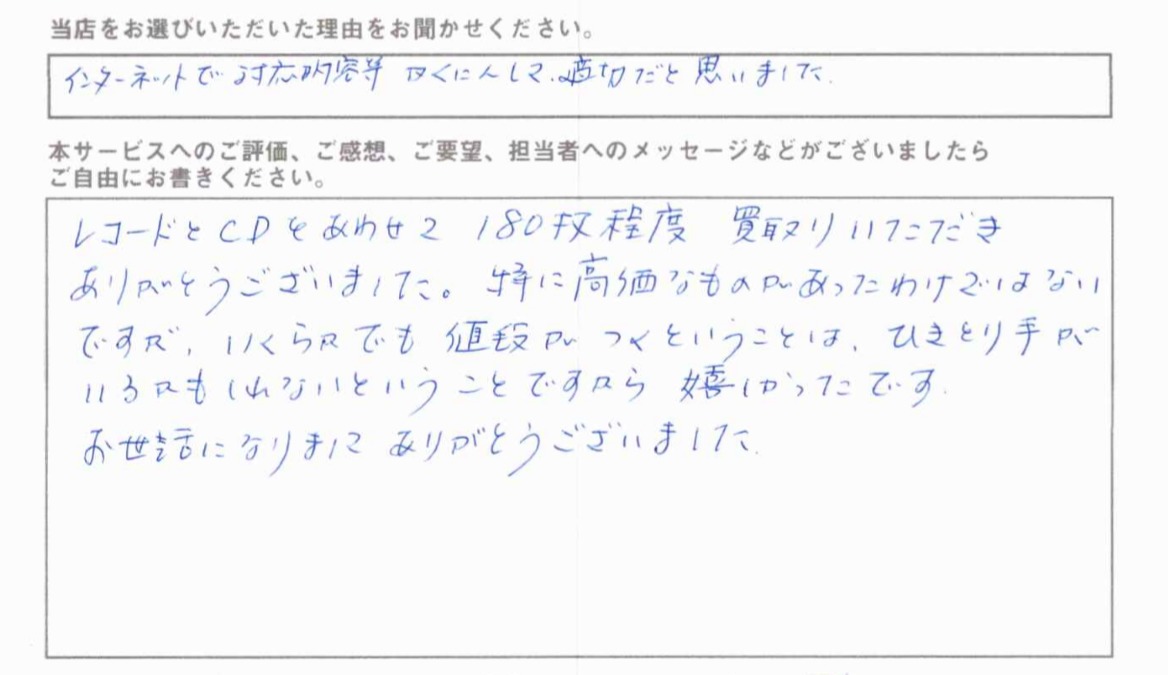 当店をお選びいただいた理由をお聞かせください。
インターネットで対応内容等 かくにんして、適切だと思いました。
本サービスへのご評価、ご感想、ご要望、担当者へのメッセージなどがございましたら
ご自由にお書きください。
レコードとCDをあわせて 180枚程度 買取りいただき
ありがとうございました。特に高価なものがあったわけではない
ですが、いくらかでも値段がつくということは、ひきとり手が
いるかもしれないということですから 嬉しかったです。
お世話になりまして ありがとうございました。